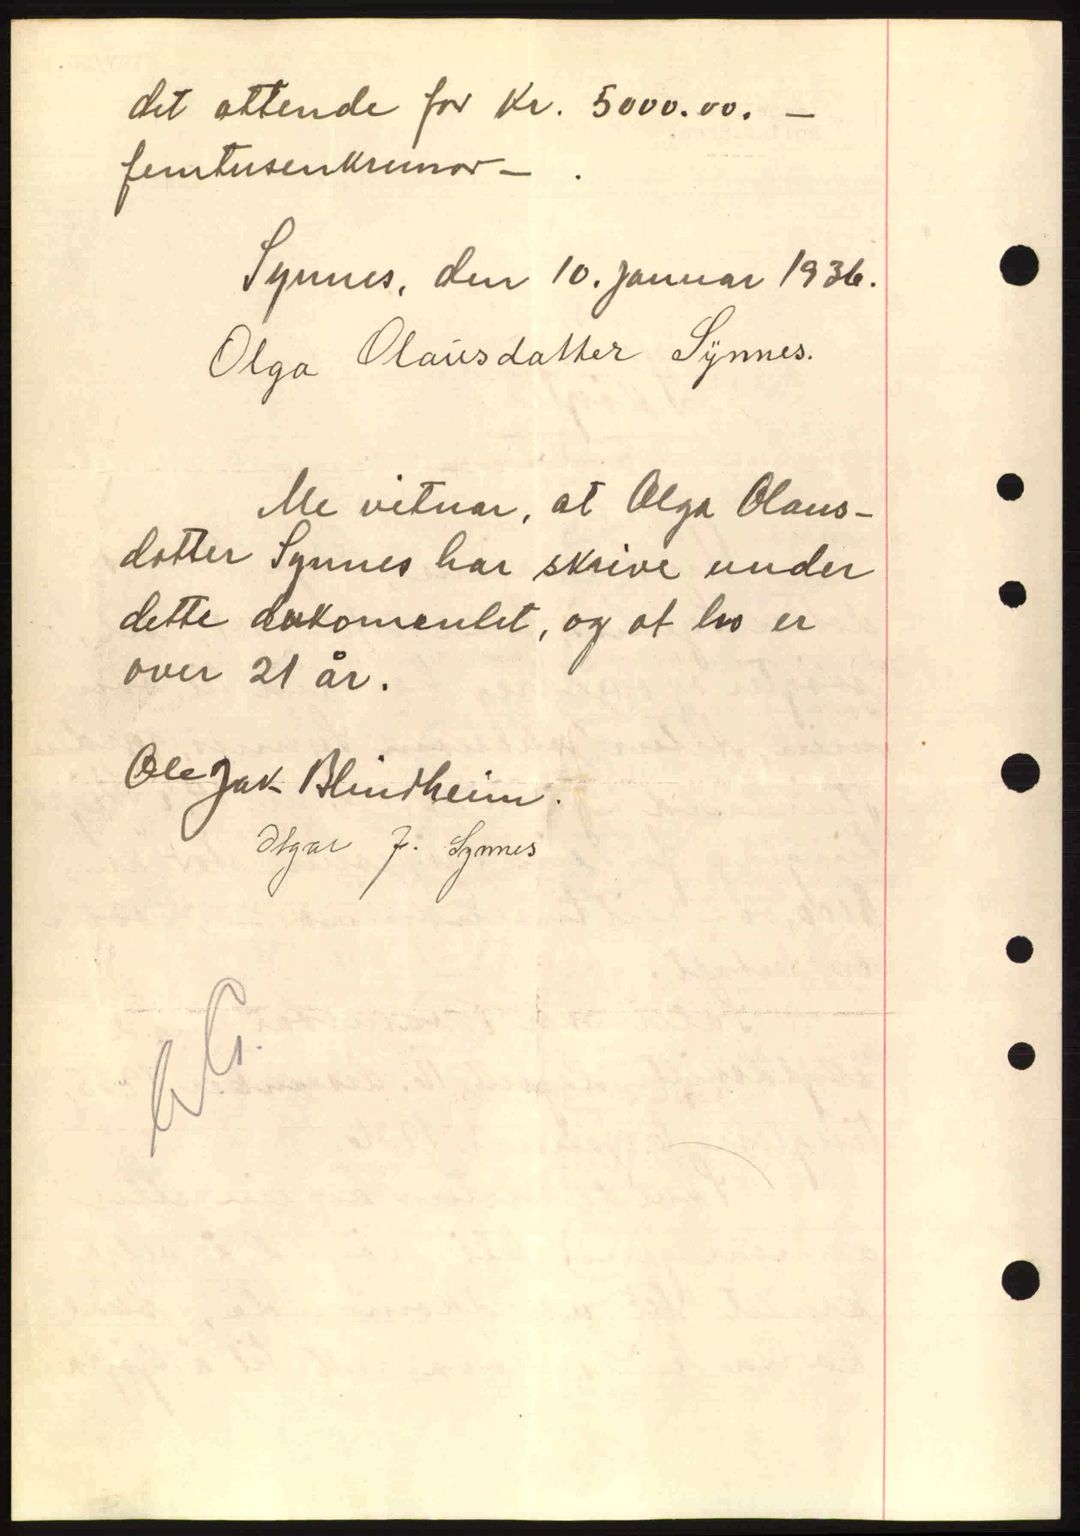 det attende for Kr. 5000.00. —
femtusenkronor — .
Synnes, den 10. januar 1936.
Olga Olausdatter Synnes.
Me vitnar, at Olga Olaus-
datter Synnes har skrive under
dette dokomentet, og at ho er
over 21 år.
Ole Jak Blindheim.
J. Synnes